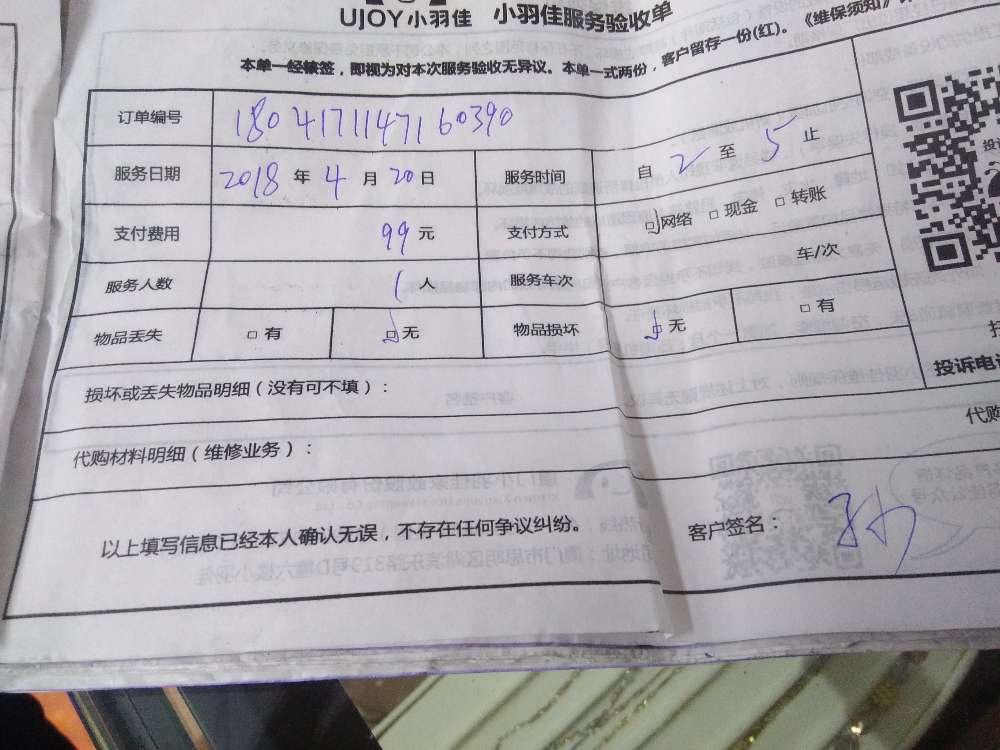 UJOY小羽佳 小羽佳服务验收单
本单一经签, 即视为对本次服务验收无异议。本单一式两份, 客户留存一份(红)。《维保须知》
订单编号 1804171147160390
服务日期 2018 年 4 月 20 日 服务时间 自 2 至 5 止
支付费用 99 元 支付方式 □网络 □现金 □转账
服务人数 1 人 服务车次 车/次
物品丢失 □有 □无 物品损坏 □无 □有
损坏或丢失物品明细(没有可不填):
投诉电
代购
代购材料明细(维修业务):
以上填写信息已经本人确认无误, 不存在任何争议纠纷。
客户签名: